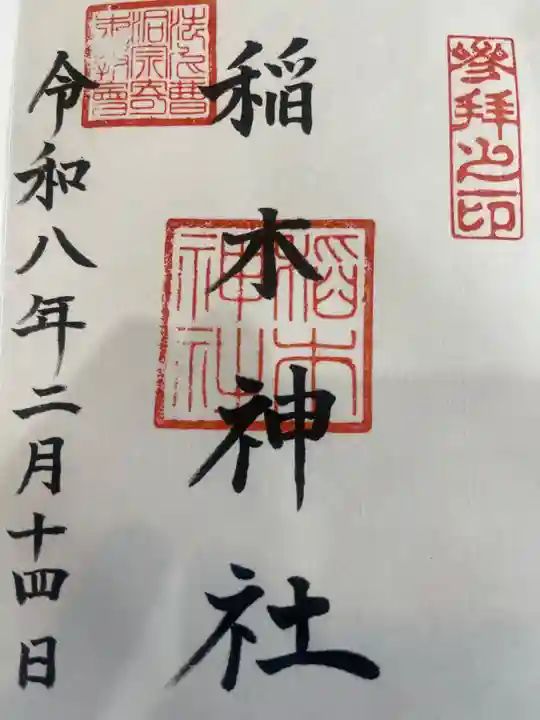 參拜之印
稲木神社
稲木神社
令和八年二月十四日